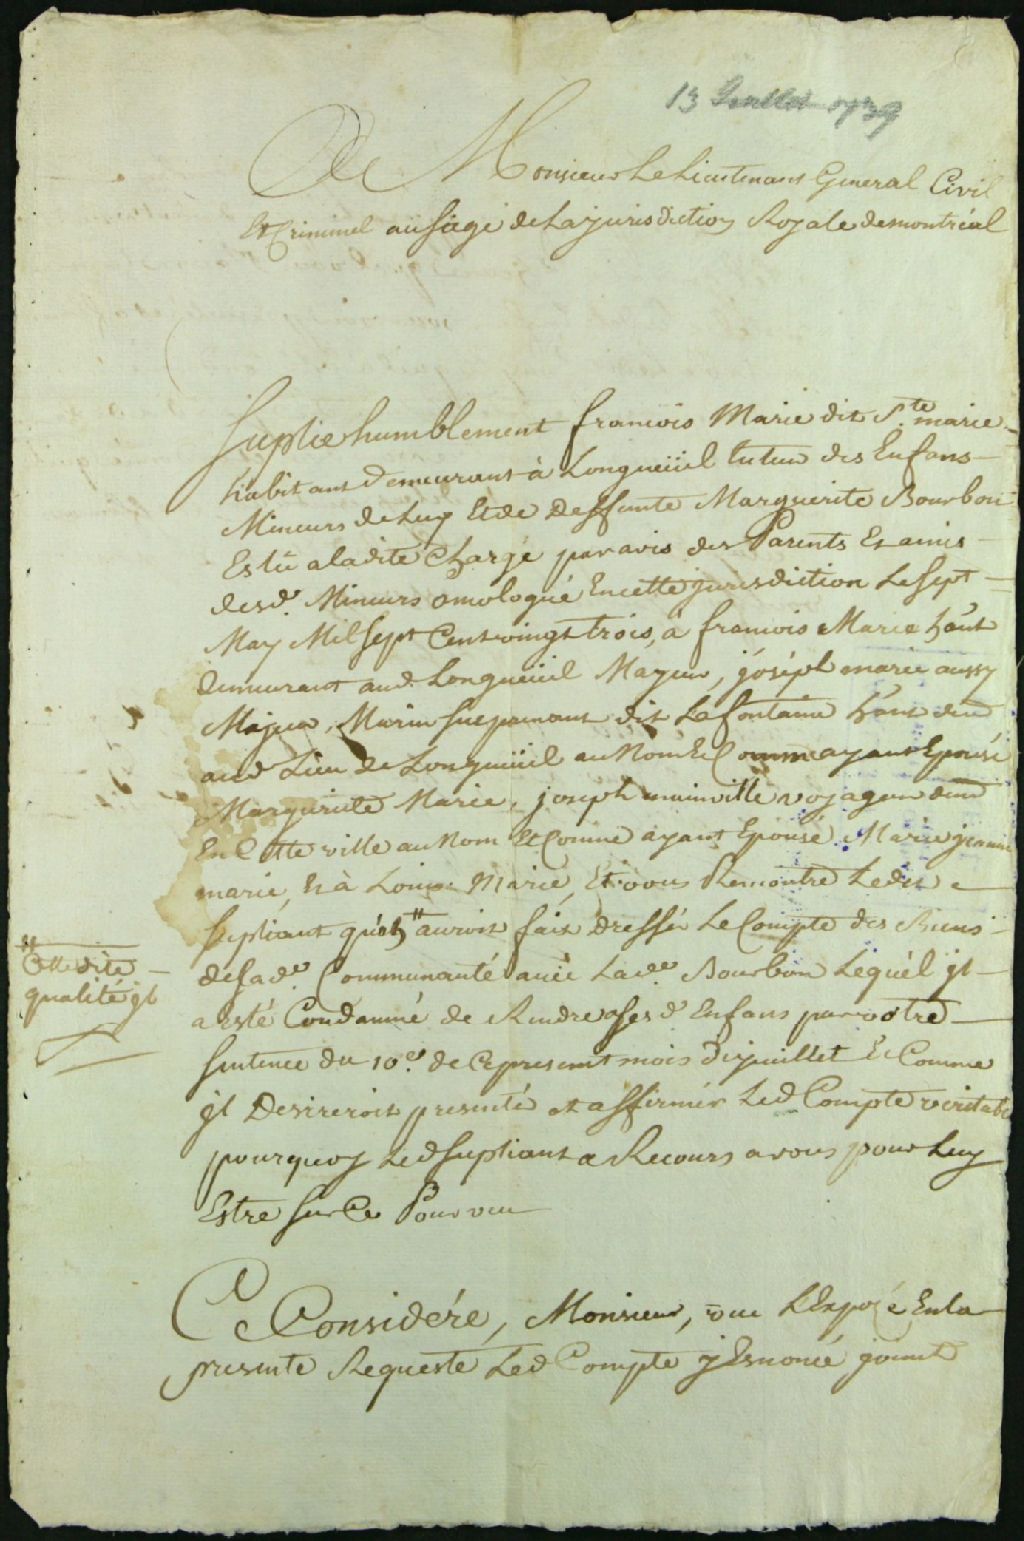 13 Juillet 1739
A Monsieur Le Lieutenant General Civil
Et Criminel au siege de La jurisdiction Royale de montréal
Suplie humblement francois Marie dit Ste. marie
habitant demeurant à Longueüil tuteur des Enfans
Mineurs de Luy Et de deffunte Marguerite Bourbon
Eslü a ladite Charge par avis des Parents Et amis
desd. Mineurs omologué En cette jurisdiction Le sept
May Mil sept Cent vingt trois, à francois Marie hant
demeurant aud. Longueüil Mayeur, joséph marie aussy
Majeur, Marin surprenant dit Lafontaine hant dem
aud Lieu de Longueüil au Nom Et Comme ayant Epousé
Marguerite Marie, joseph mainville voyageur dem
En Cette ville au Nom Et Comme ayant Epousé Marie jeanne
marie, Et à Louise Marie, Et vous Remontre Ledit
supliant qu'en # auroit fait dressér Le Compte des Biens
de sad. Communauté avec Lade. Bourbon Lequél jl
a esté Condamné de Rendre a ses d. Enfans par votre
sentence du 10e. de Ce present mois de juillet Et Comme
jl desireroit presenté et affirmér Led Compte veritable
pourquoy Led supliant a Recours a vous pour Luy
Estre sur Ce Pourveu
# Cette dite
qualité jl
Ce Considéré, Monsieur, vue L'Exposé En la
presente Requeste Led Compte y Esnoncé joint